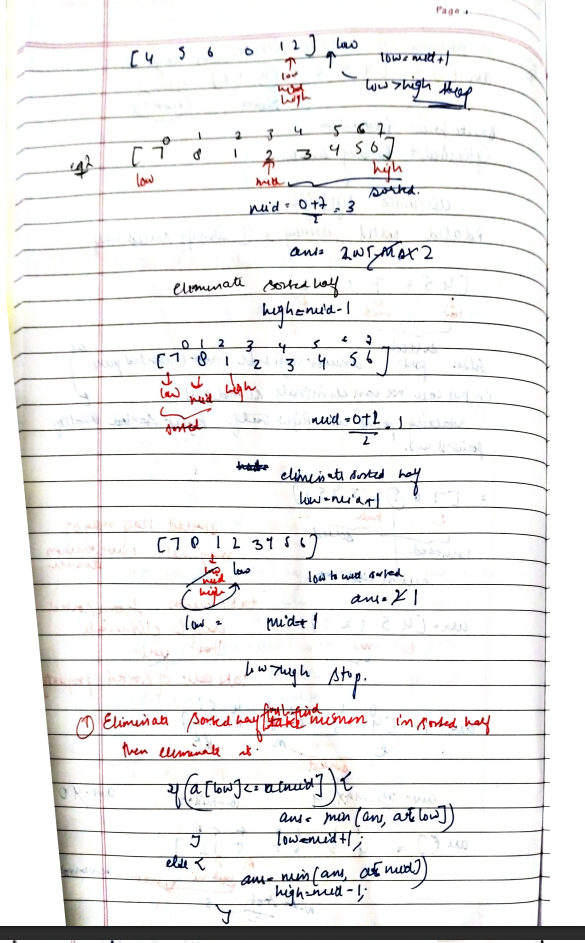 Page
[4 5 6 0 1 2] low
low mid high
low=mid+1
low>high stop
eg2
0 1 2 3 4 5 6 7
[7 8 1 2 3 4 5 6]
low mid high
sorted.
mid = 0+7/2 = 3
ans = INT_MAX 2
eliminate sorted half
high=mid-1
0 1 2 3 4 5 6 7
[7 8 1 2 3 4 5 6]
low mid high
sorted
mid = 0+2/2 = 1
eliminate sorted half
low=mid+1
[7 8 1 2 3 4 5 6]
low mid high low
low to mid sorted
ans= 2 1
low = mid+1
low>high stop.
① Eliminate sorted half first find minm in sorted half
then eliminate it.
if (a[low]<=a[mid]) {
ans= min(ans, a[low])
low=mid+1;
}
else {
ans= min(ans, a[mid])
high=mid-1;
}